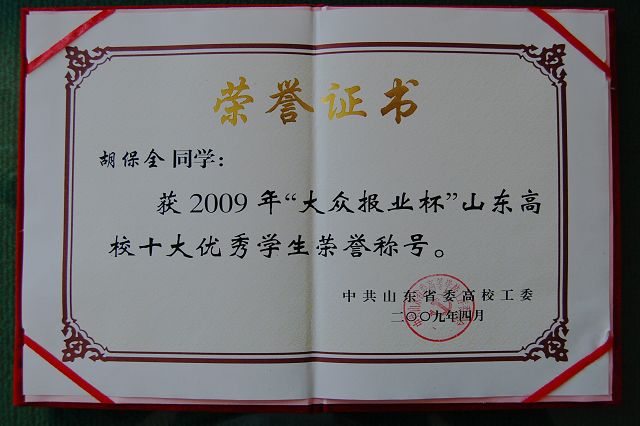 荣誉证书
胡保全 同学：
获 2009 年“大众报业杯”山东高
校十大优秀学生荣誉称号。
中共山东省委高校工委
二〇〇九年四月